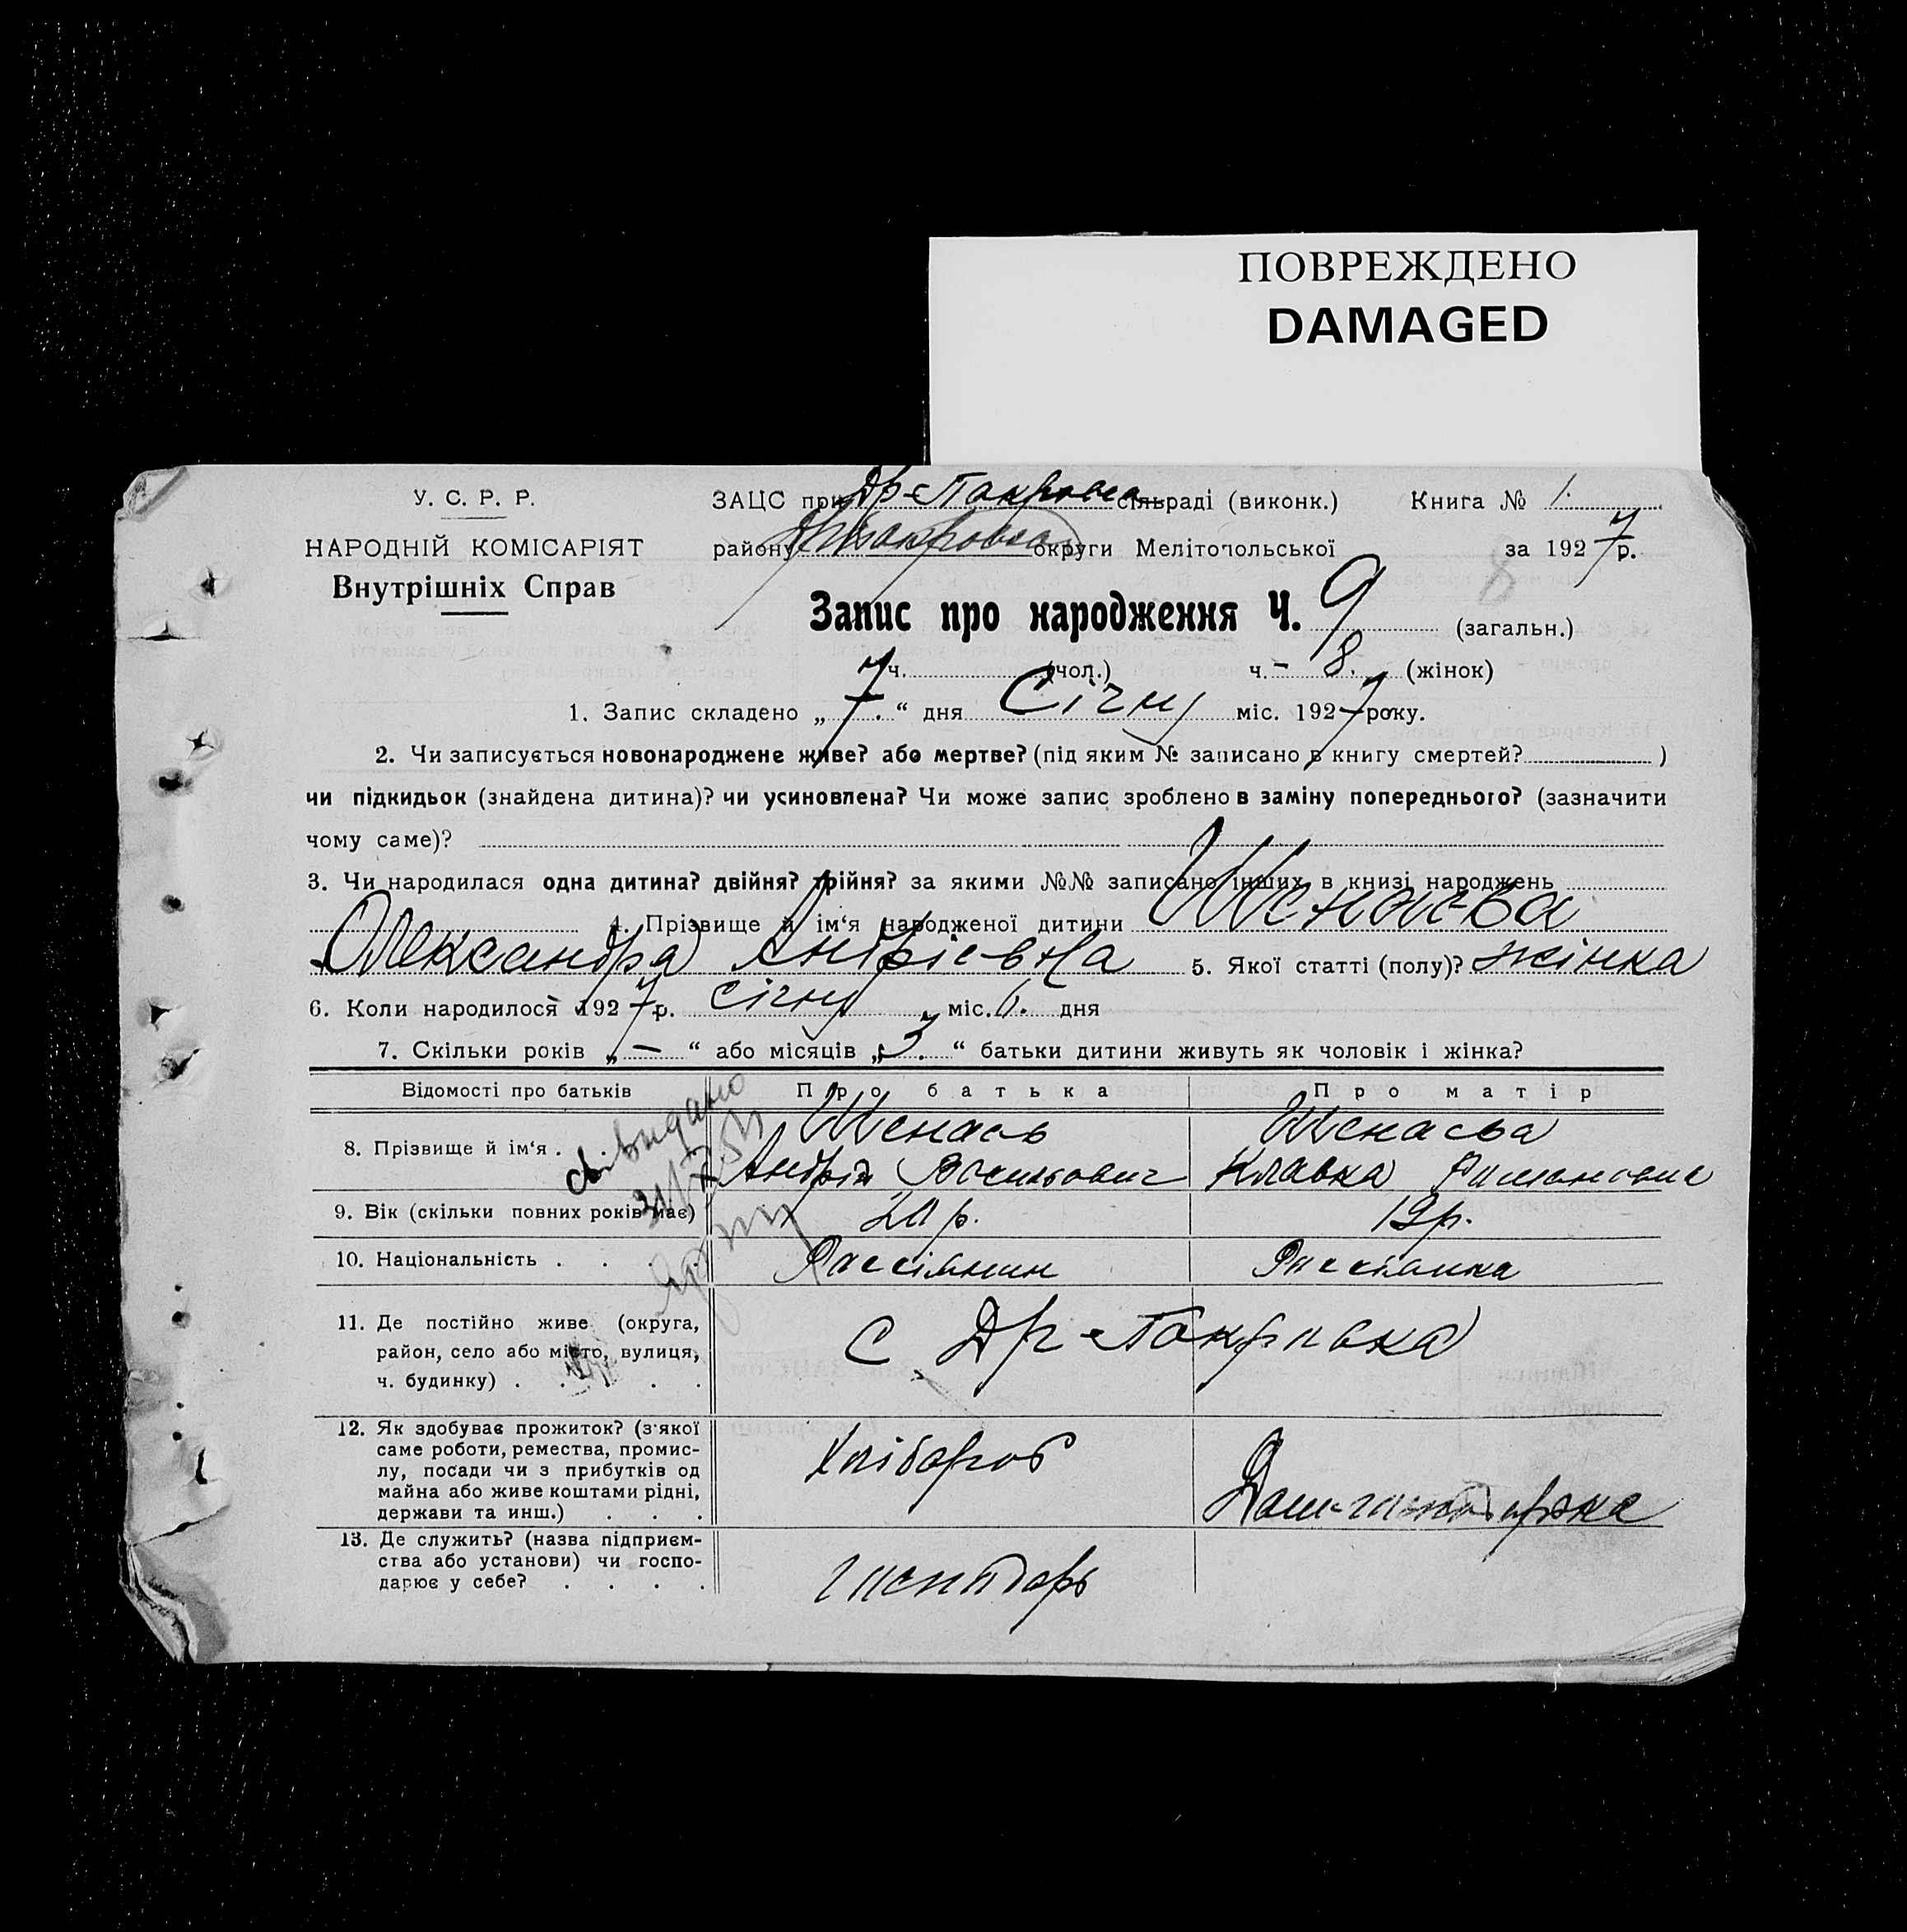 ПОВРЕЖДЕНО
DAMAGED
У. С. Р. Р.
НАРОДНІЙ КОМІСАРІЯТ
Внутрішніх Справ
ЗАЦС при Др-Покровка сільраді (виконк.) Книга № 1.
району округи Мелітопольської за 1927 р.
Запис про народження Ч. 9 (загальн.)
8
ч. (чол.) ч. – 8. (жінок)
1. Запис складено „ 7. “ дня Січня міс. 1927 року.
2. Чи записується новонароджене живе? або мертве? (під яким № записано в книгу смертей? )
чи підкидьок (знайдена дитина)? чи усиновлена? Чи може запис зроблено в заміну попереднього? (зазначити
чому саме)?
3. Чи народилася одна дитина? двійня? трійня? за якими №№ записано інших в книзі народжень
4. Прізвище й ім‘я народженої дитини
Олександра Андрієвна 5. Якої статті (полу)? жінка
6. Коли народилося 1927 р. січня міс. дня
7. Скільки років „ — “ або місяців „ 3. “ батьки дитини живуть як чоловік і жінка?
Відомості про батьків Про батька Про матір
8. Прізвище й ім‘я .
Андрій Васильович Клавка Романовна
9. Вік (скільки повних років має) 20 р. 19 р.
10. Національність . . . . Россіянин Россіянка
11. Де постійно живе (округа,
район, село або місто, вулиця,
ч. будинку) . . . . .
с Др-Покровка
12. Як здобуває прожиток? (з‘якої
саме роботи, ремества, промис-
лу, посади чи з прибутків од
майна або живе коштами рідні,
держави та инш.) . . .
Хлібороб Дом-господарка
13. Де служить? (назва підприєм-
ства або установи) чи госпо-
дарює у себе? . . . .
господарь